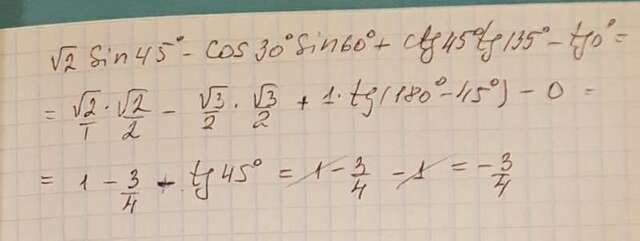 √2 sin 45° - cos 30° sin 60° + ctg 45° tg 135° - tg 0° =
= √2/1 · √2/2 - √3/2 · √3/2 + 1 · tg(180° - 45°) - 0 =
= 1 - 3/4 - tg 45° = 1 - 3/4 - 1 = - 3/4